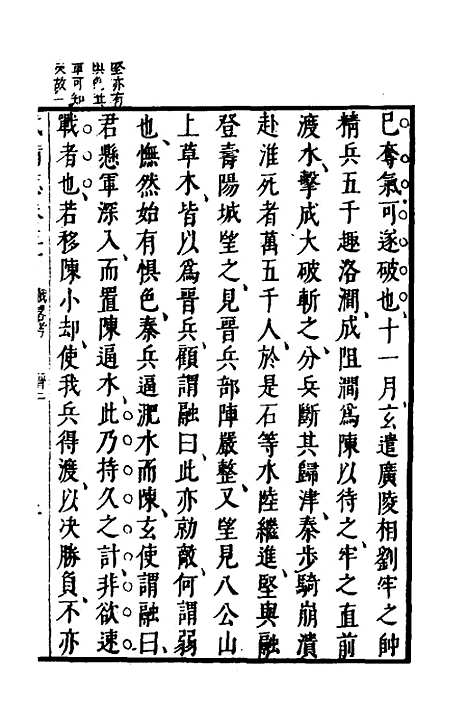 堅亦有
與色其
軍可知
矣故一
已奪氣可遂破也十一月玄遣廣陵相劉牢之帥
精兵五千趣洛澗成阻澗爲陳以待之牢之直前
渡水擊成大破斬之分兵斷其歸津秦步騎崩潰
赴淮死者萬五千人於是石等水陸繼進堅與融
登壽陽城望之見晉兵部陣嚴整又望見八公山
上草木皆以爲晉兵顧謂融曰此亦勍敵何謂弱
也憮然始有懼色秦兵逼淝水而陳玄使謂融曰
君懸軍深入而置陳逼水此乃持久之計非欲速
戰者也若移陳小却使我兵得渡以决勝負不亦